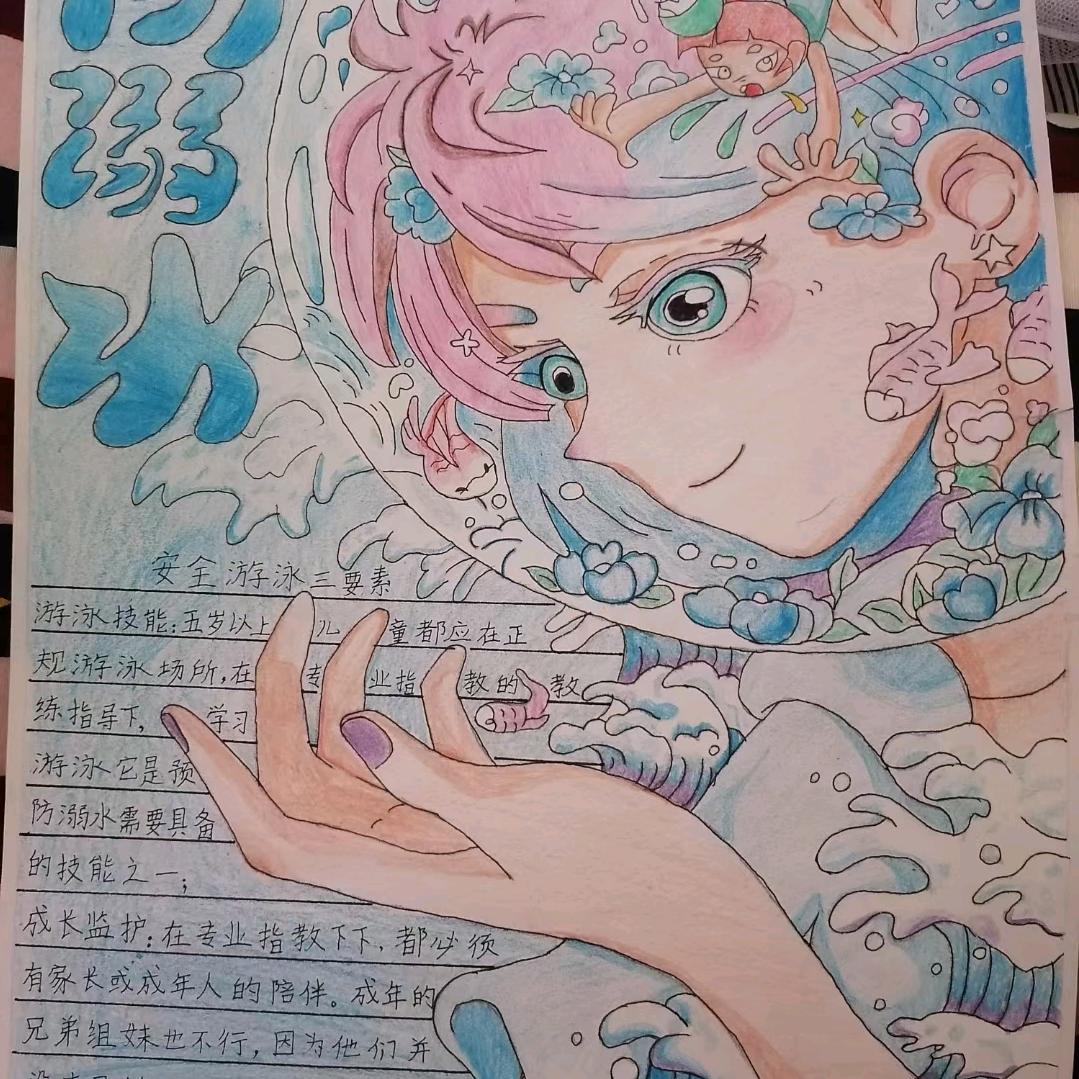 防
溺
水
安全游泳三要素
游泳技能：五岁以上 儿 童都应在正
规游泳场所，在 专业指 教的 教
练指导下， 学习
游泳它是预
防溺水需要具备
的技能之一；
成长监护：在专业指教下下，都必须
有家长或成年人的陪伴。成年的
兄弟组妹也不行，因为他们并